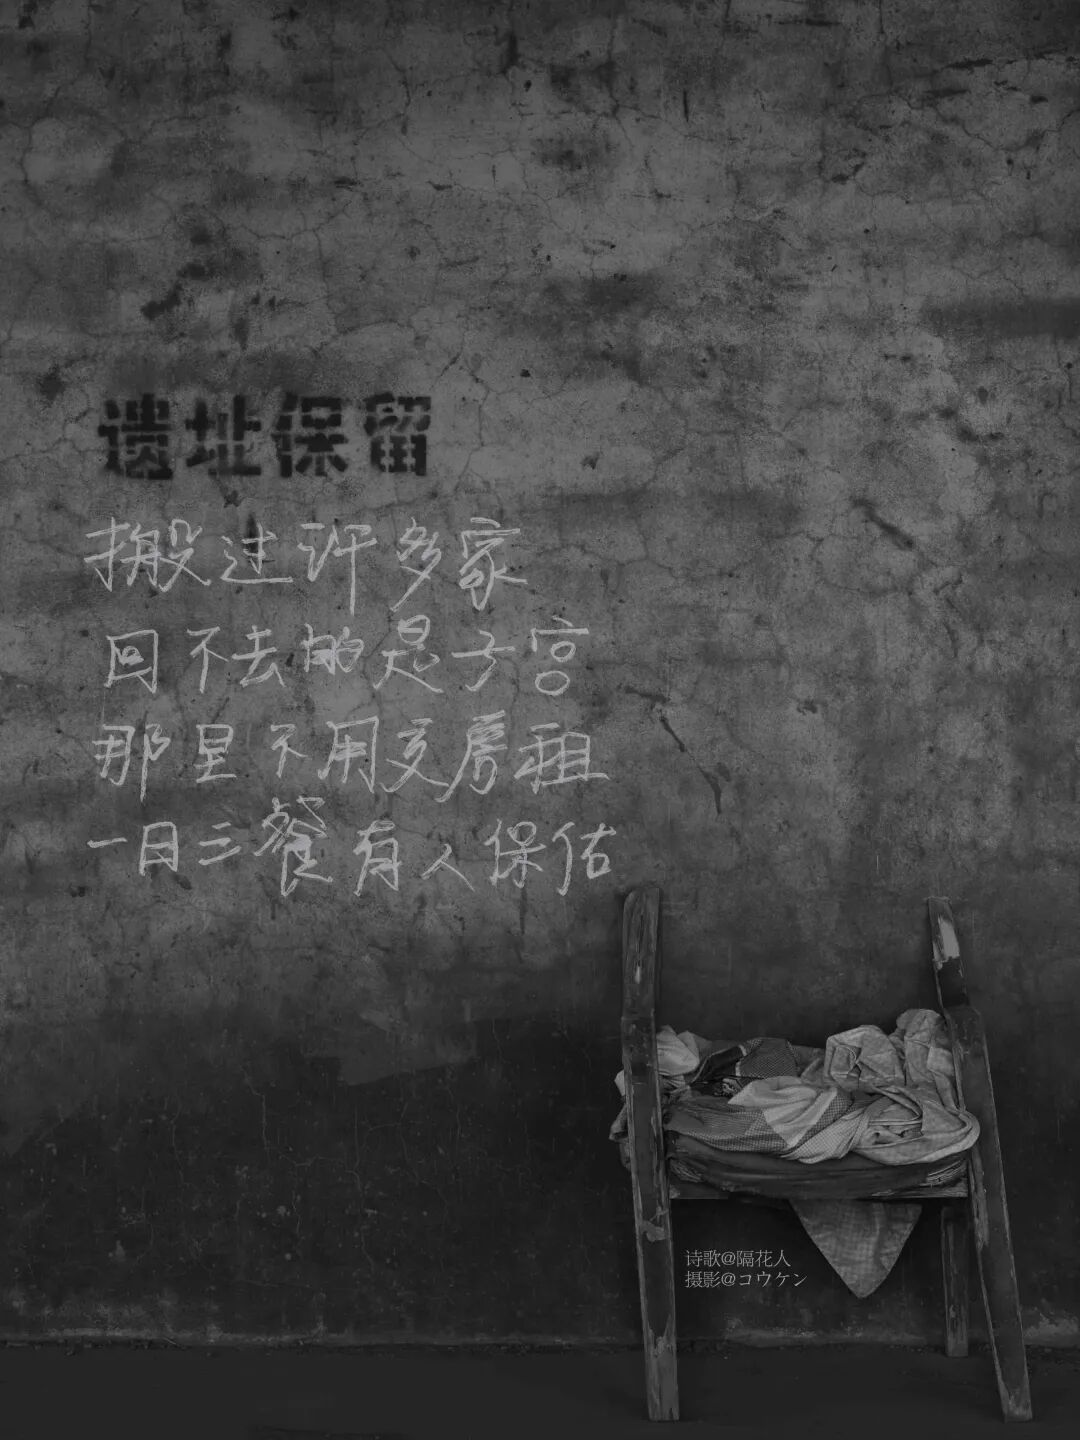 遗址保留
搬过许多家
回不去的是子宫
那里不用交房租
一日三餐有人保估
诗歌@隔花人
摄影@コウケン